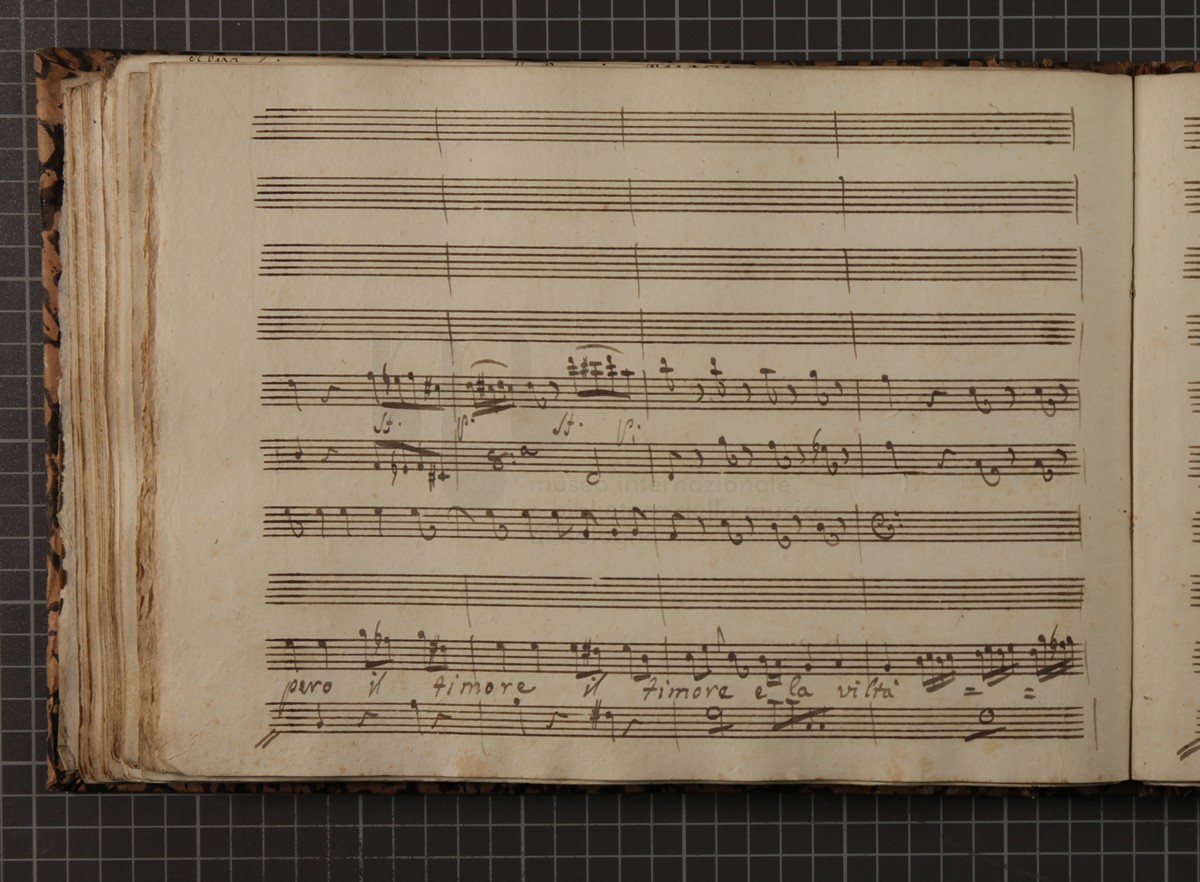 St. p. St. p.
museo internazionale
pero il timore il timore e la viltà = =